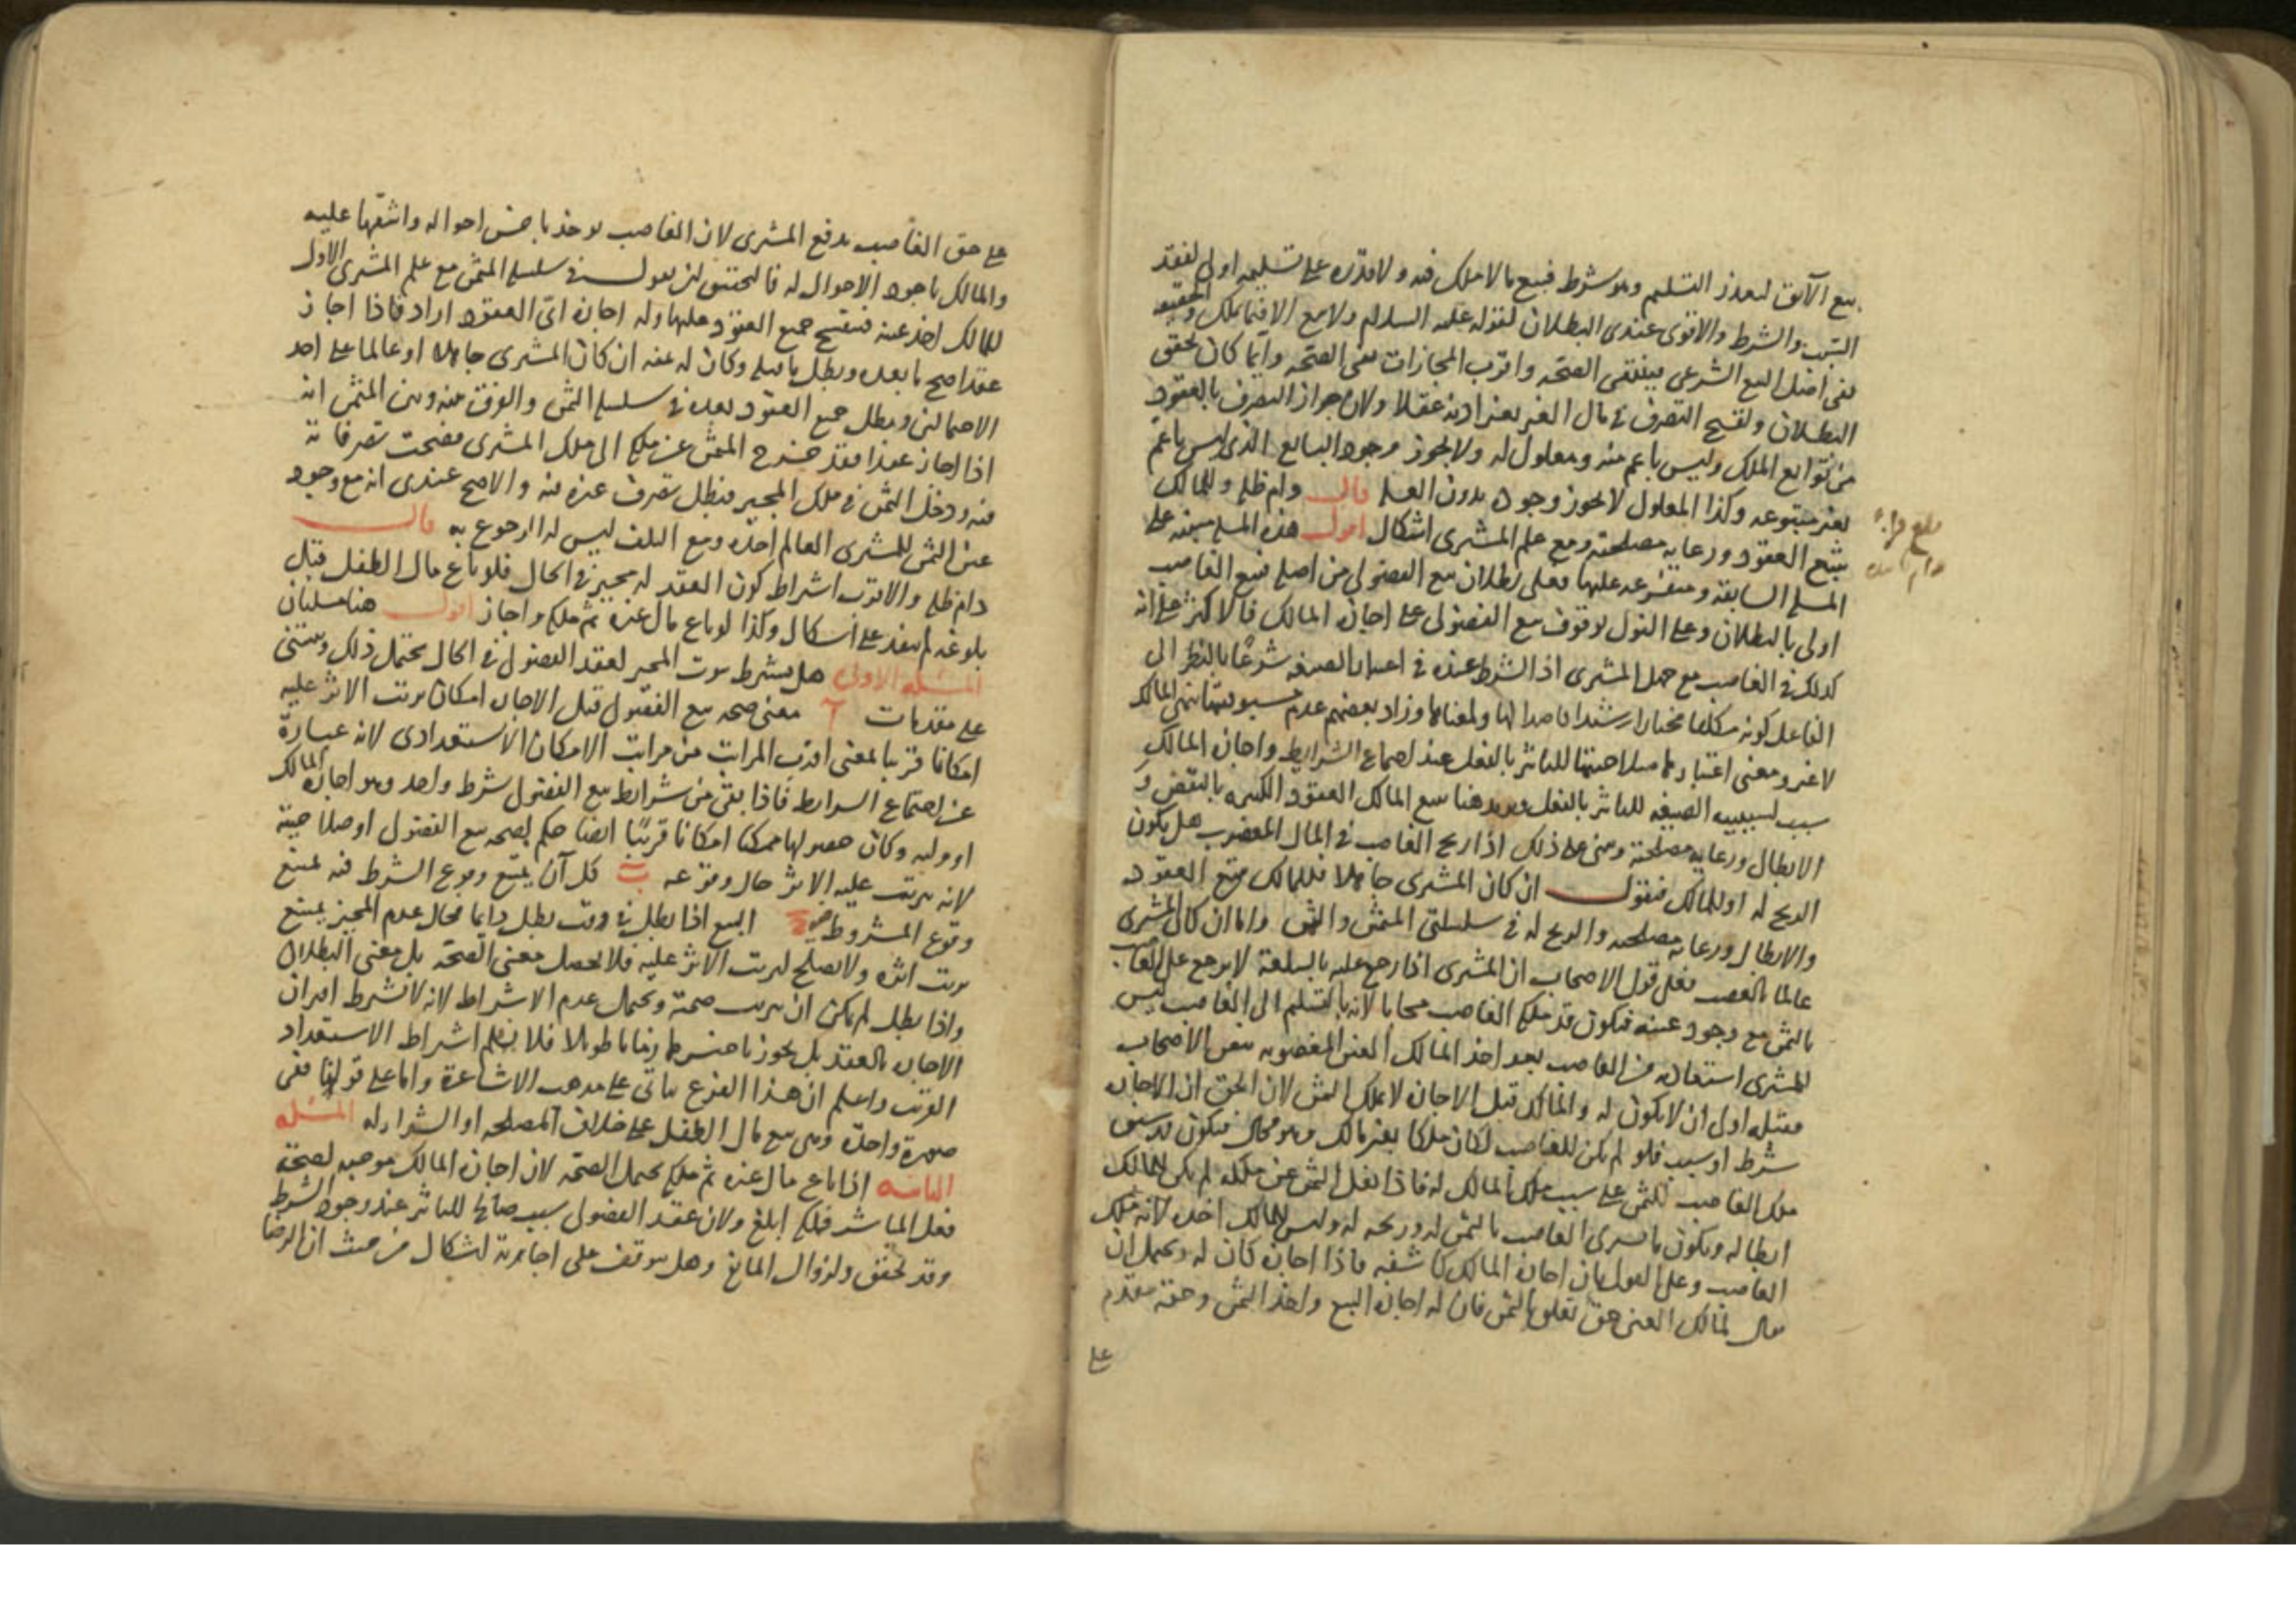 بيع الآبق لتعذر التسليم وهو شرط فبيع ما لا ملك فيه ولا قدرة على تسليمه اولى لفقد
السبب والشرط والاقوى عندي البطلان لقوله عليه السلام ولا بيع الا فيما يملك والحقيقة
نفي اصل البيع الشرعي فينتفي الصحة واقرب المجازات نفي الصحة وايما كان تحقق
البطلان ولقبح التصرف في مال الغير بغير اذنه عقلا ولان جواز التصرف بالعقود
من توابع الملك وليس باعم منه ومعلول له ولا يجوز وجود التابع الذي ليس باعم
بغير متبوعه وكذا المعلول لا يجوز وجوده بدون العلة قال دام ظله وللمالك
تتبع العقود ورعاية مصلحته ومع علم المشتري اشكال اقول هذه المسئلة مبنية على
المسئلة السابقة ومتفرعة عليها فعلى بطلان بيع الفضولي من اصله فبيع الغاصب
اولى بالبطلان وعلى القول بوقوف بيع الفضولي على اجازة المالك فالاكثر على انه
كذلك في الغاصب مع جهل المشتري اذ الشرط عنده في اعتبار الصيغة شرعا بالنظر الى
الفاعل كونه مكلفا مختارا رشيدا قاصدا لها ولمعناها وزاد بعضهم عدم مسبوقيتها بنهي المالك
لا غير ومعنى اعتبارها صلاحيتها للتاثير بالفعل عند اجتماع الشرايط واجازة المالك
سبب لسببية الصيغة للتاثير بالفعل هنا تتبع المالك العقود الكثيرة بالنقض و
الابطال ورعاية مصلحته وبنى على ذلك اذا ربح الغاصب في المال المغصوب هل يكون
الربح له او للمالك فنقول ان كان المشتري جاهلا فللمالك تتبع العقود
والابطال ورعاية مصلحته والربح له في سلسلتي المثمن والثمن واما ان كان المشتري
عالما بالغصب فعلى قول الاصحاب ان المشتري اذا رجع عليه بالسلعة لا يرجع على الغاصب
بالثمن مع وجود عينه فيكون قد ملك الغاصب مجانا لانه بالتسليم الى الغاصب ليس
للمشتري استعادته من الغاصب بعد اخذ المالك العين المغصوبة بنص الاصحاب
فقبله اولى ان لا يكون له والمالك قبل الاجازة لا يملك الثمن لان الحق ان الاجازة
شرط او سبب فلو لم يكن للغاصب لكان ملكا بغير مالك وهو محال فيكون قد سبق
ملك الغاصب للثمن على سبب ملك المالك له فاذا نقل الثمن عن ملكه لم يكن للمالك
ابطاله ويكون ما يشتري الغاصب بالثمن له وربحه له وليس للمالك اخذه لانه ملك
الغاصب وعلى القول بان اجازة المالك كاشفة فاذا اجازه كان له ويحتمل ان
يقال لمالك العين حق تعلق بالثمن فان له اجازة البيع واخذ الثمن وحقه مقدم
على
بلغ قراءة
دام ظله
على حق الغاصب بدفع المشتري لان الغاصب يوخذ باخس احواله واشقها عليه
والمالك باجود الاحوال له فالتحقيق ان نقول في سلسلة المثمن مع علم المشتري الاول
للمالك اخذ عينه فينفسخ جميع العقود عليها وله اجازة اي العقود اراد فاذا اجاز
عقدا صح ما بعده وبطل ما قبله وكان له ثمنه ان كان المشتري جاهلا او عالما على احد
الاحتمالين وبطل جميع العقود بعده في سلسلة الثمن والفرق بينه وبين المثمن انه
اذا اجاز عقدا فقد خرج المثمن عن ملكه الى ملك المشتري فصحت تصرفاته
فيه ودخل الثمن في ملك المجيز فبطل تصرف غيره فيه والاصح عندي انه مع وجود
عين الثمن للمشتري العالم اخذه ومع التلف ليس له الرجوع به قال
دام ظله والاقرب اشتراط كون العقد له مجيز في الحال فلو باع مال الطفل قبل
بلوغه لم ينفذ على اشكال وكذا لو باع مال غيره ثم ملكه واجاز اقول هنا مسئلتان
المسئلة الاولى هل يشترط ثبوت المجيز لعقد الفضولي في الحال يحتمل ذلك ويبتنى
على مقدمات آ معنى صحة بيع الفضولي قبل الاجازة امكان ترتب الاثر عليه
امكانا قريبا بالمعنى اقرب المراتب من مراتب الامكان الاستعدادي لانه عبارة
عن اجتماع الشرايط فاذا بقي من شرايط بيع الفضولي شرط واحد وهو اجازة المالك
او وليه وكان حصولها ممكنا امكانا قريبا ايضا حكم بصحة بيع الفضولي او صلاحيته
لانه يترتب عليه الاثر حال وقوعه ب كل آن يمتنع وقوع الشرط فيه يمتنع
وقوع المشروط فيه ج البيع اذا بطل في وقت بطل دايما فحال عدم المجيز يمتنع
ترتب اثره ولا يصلح لترتب الاثر عليه فلا يحصل معنى الصحة بل معنى البطلان
واذا بطل لم يكن ان يترتب صحته ويحتمل عدم الاشتراط لانه لا يشترط اقتران
الاجازة بالعقد بل يجوز تاخيرها زمانا طويلا فلا يلزم اشتراط الاستعداد
القريب واعلم ان هذا الفرع ياتي على مذهب الاشاعرة واما على قولنا ففي
صورة واحدة وهي بيع مال الطفل على خلاف المصلحة او الشراء له المسئلة
الثانية اذا باع مال غيره ثم ملكه يحتمل الصحة لان اجازة المالك موجبة لصحة
فعل المباشر فملكه ابلغ ولان عقد الفضولي سبب صالح للتاثير عند وجود الشرط
وقد تحقق ولزوال المانع وهل يتوقف على اجازته اشكال من حيث ان الرضا